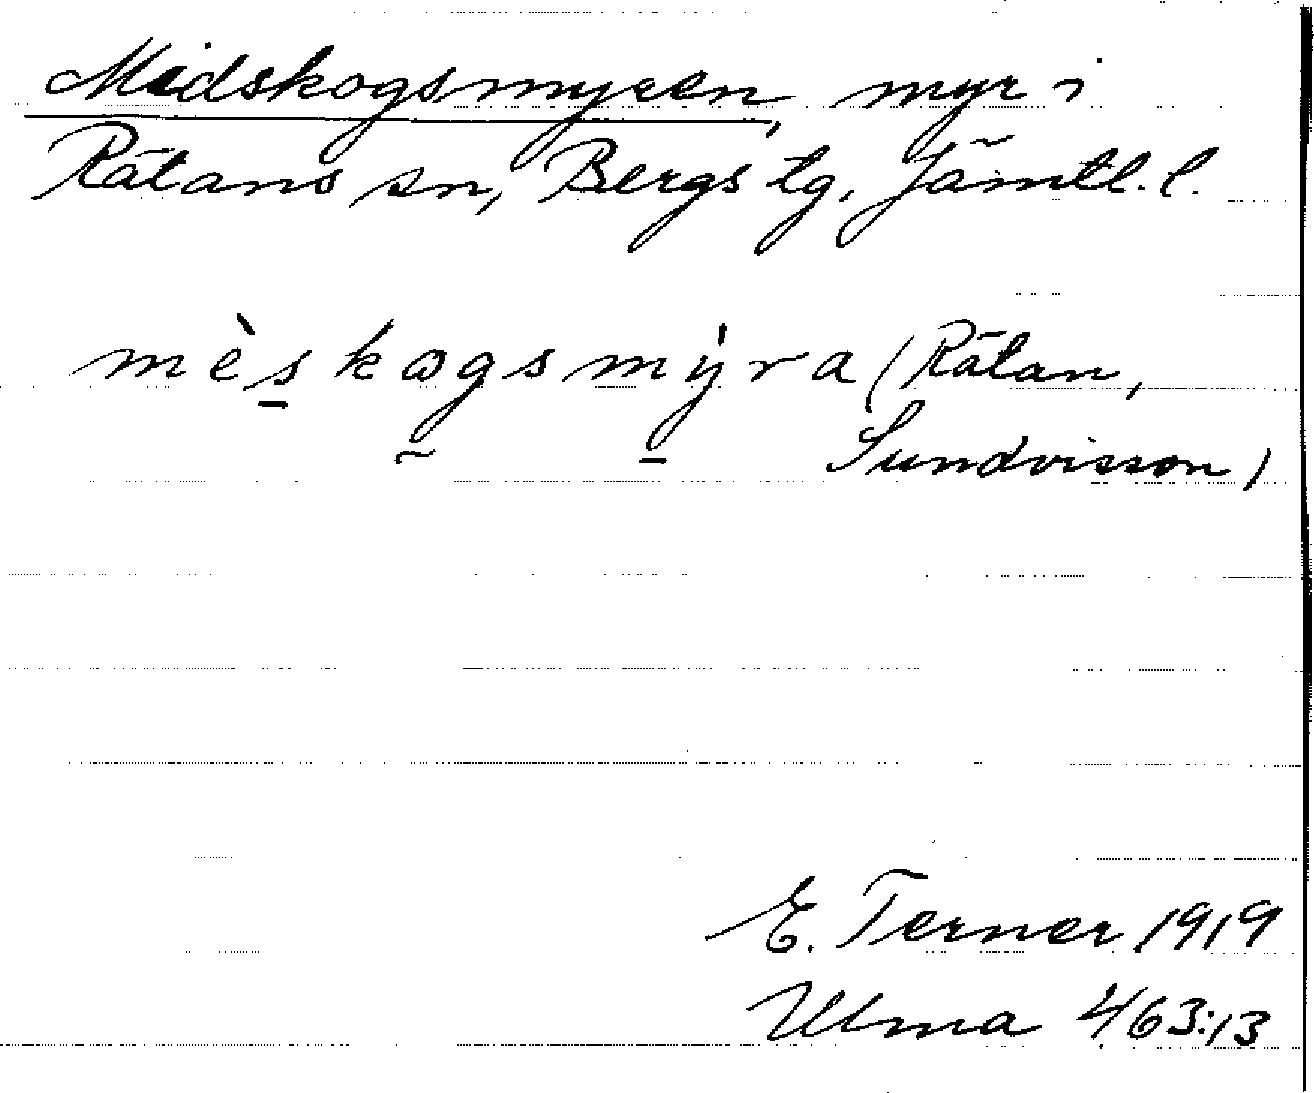 Midskogsmyren, myr i
Rätans sn, Bergs tg. Jämtl. l.
mèskogsmýra (Rätan,
Sundvisson)
E. Terner 1919
Ulma 463:13